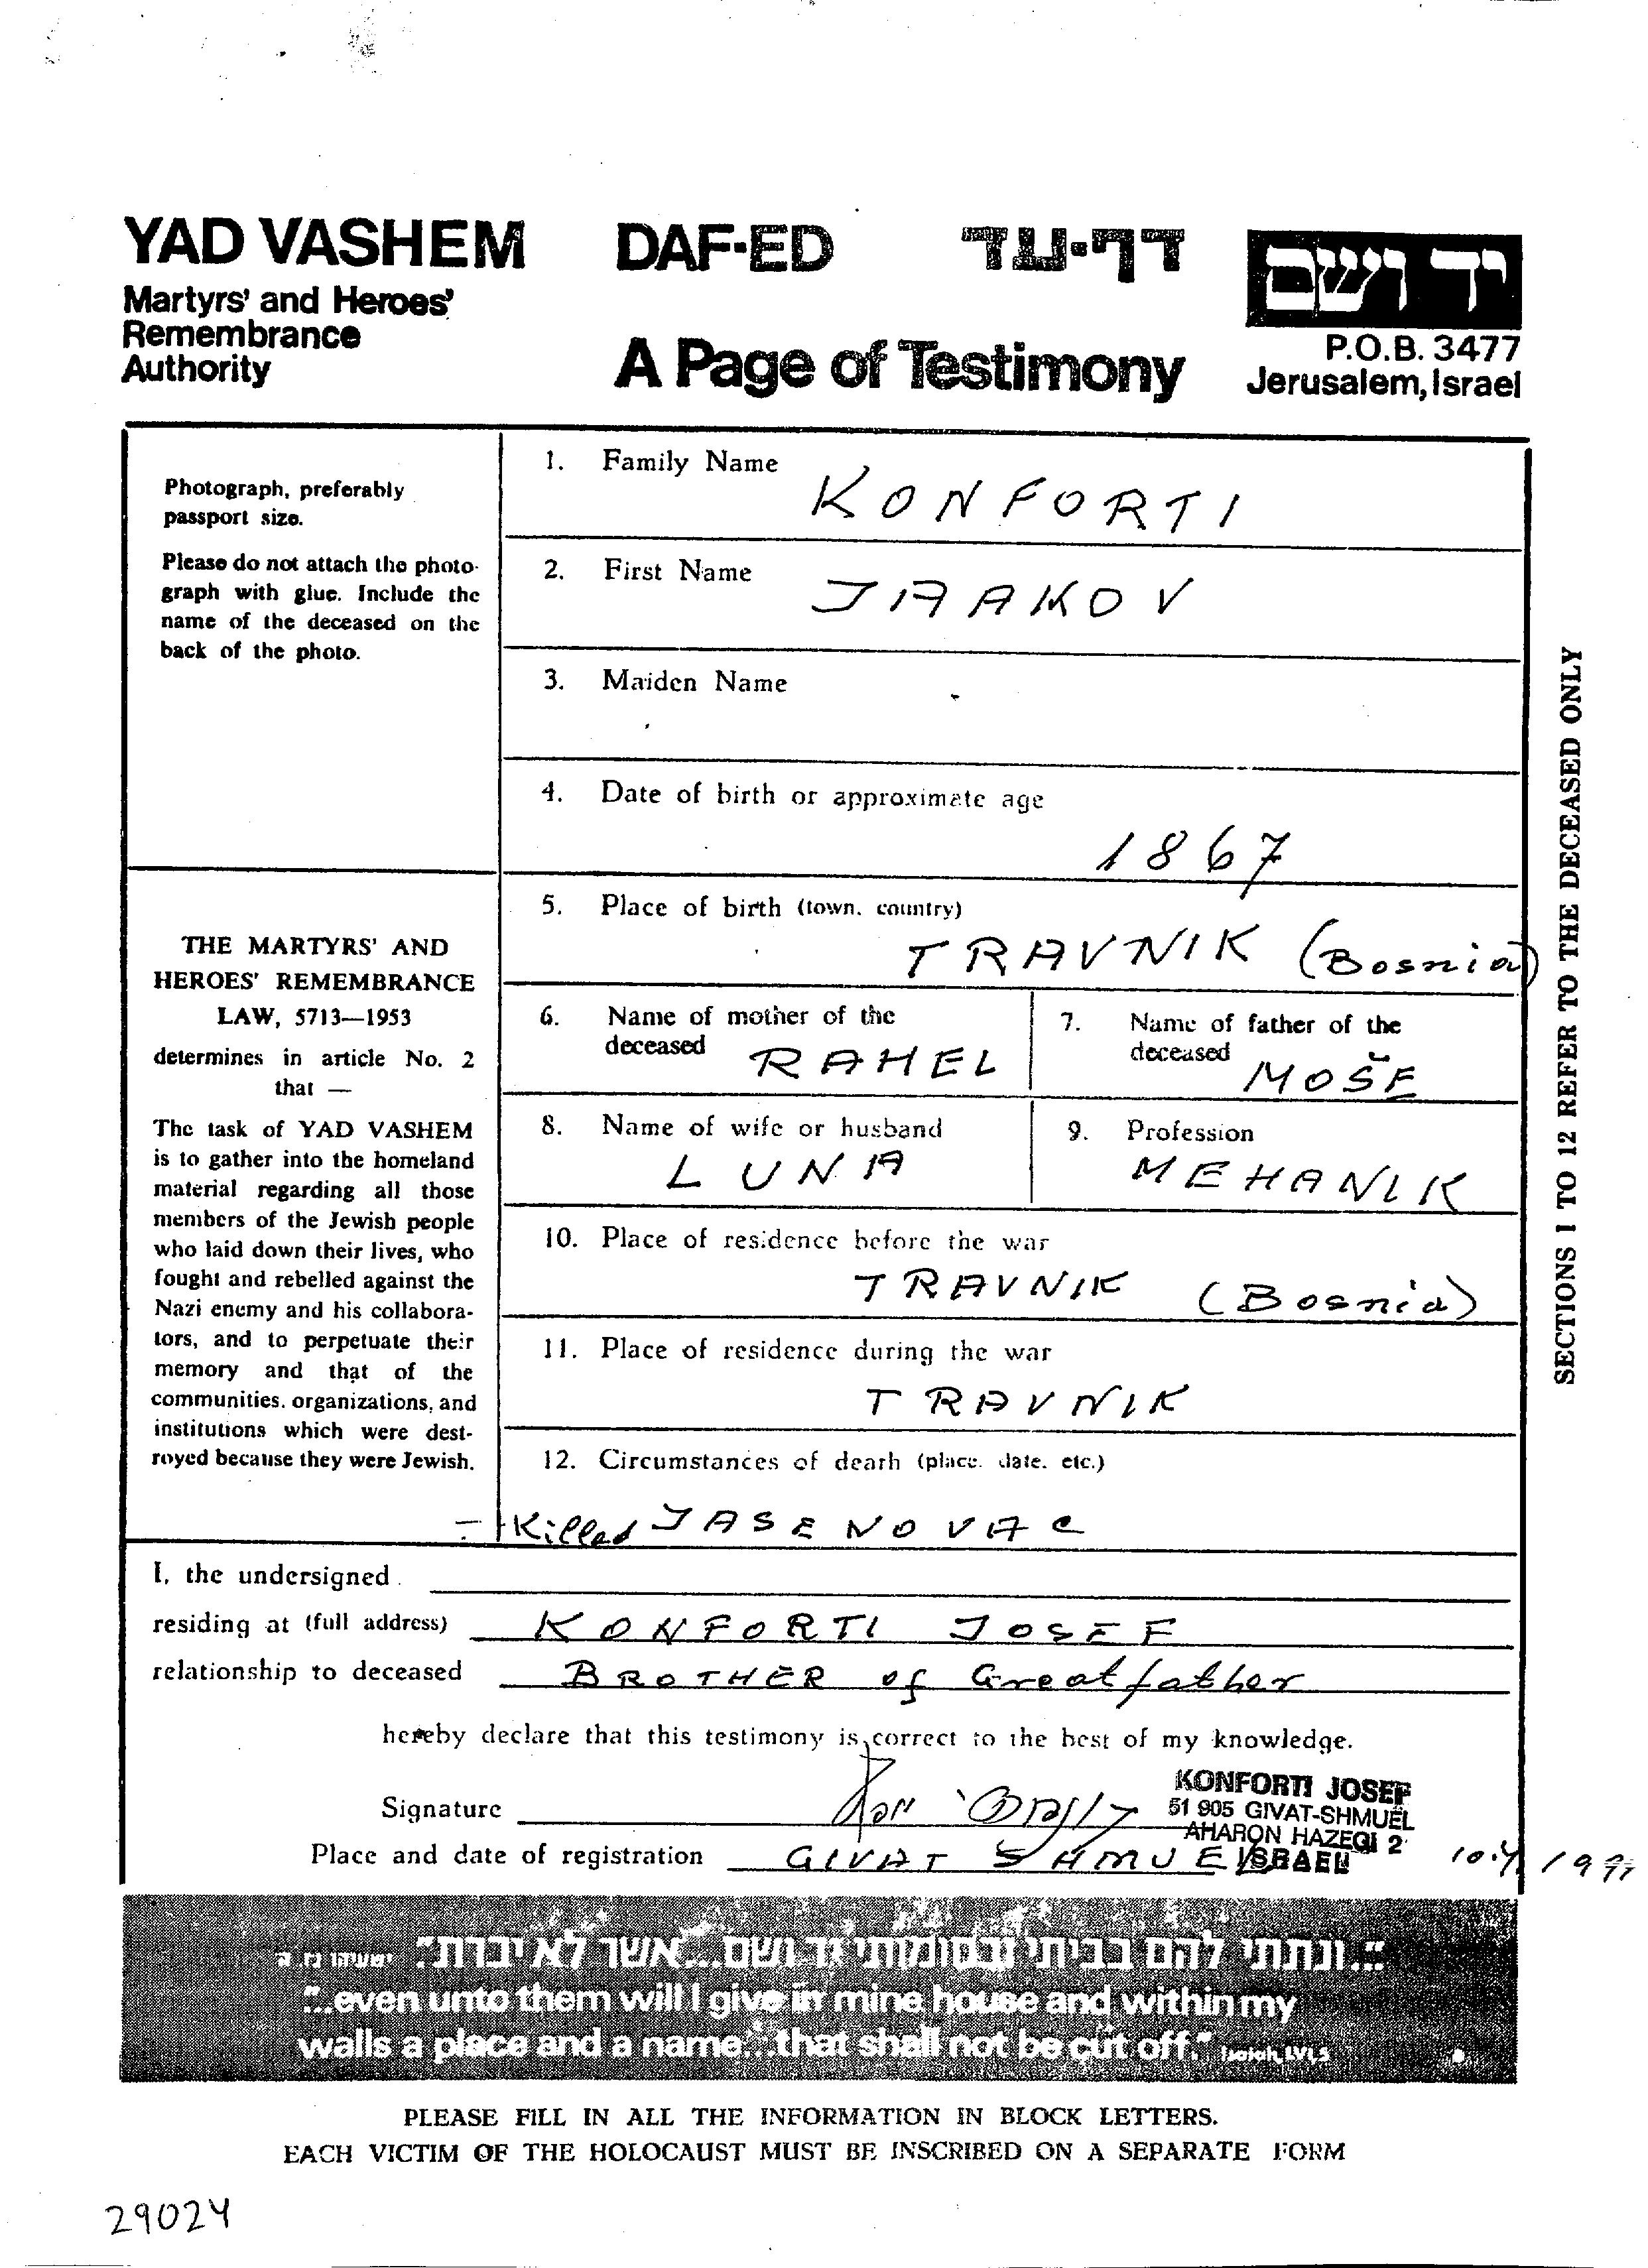 YAD VASHEM DAF-ED דף-עד יד ושם
Martyrs' and Heroes'
Remembrance
Authority
A Page of Testimony
P.O.B. 3477
Jerusalem, Israel
Photograph, preferably
passport size.
Please do not attach the photo-
graph with glue. Include the
name of the deceased on the
back of the photo.
THE MARTYRS' AND
HEROES' REMEMBRANCE
LAW, 5713—1953
determines in article No. 2
that —
The task of YAD VASHEM
is to gather into the homeland
material regarding all those
members of the Jewish people
who laid down their lives, who
fought and rebelled against the
Nazi enemy and his collabora-
tors, and to perpetuate their
memory and that of the
communities, organizations, and
institutions which were dest-
royed because they were Jewish.
1. Family Name
KONFORTI
2. First Name
JAAKOV
3. Maiden Name
-
4. Date of birth or approximate age
1867
5. Place of birth (town, country)
TRAVNIK (Bosnia)
6. Name of mother of the
deceased RAHEL
7. Name of father of the
deceased MOŠE
8. Name of wife or husband
LUNA
9. Profession
MEHANIK
10. Place of residence before the war
TRAVNIK (Bosnia)
11. Place of residence during the war
TRAVNIK
12. Circumstances of death (place, date, etc.)
- Killed JASENOVAC
SECTIONS 1 TO 12 REFER TO THE DECEASED ONLY
I, the undersigned
residing at (full address) KONFORTI JOSEF
relationship to deceased BROTHER of Greatfather
hereby declare that this testimony is correct to the best of my knowledge.
Signature
KONFORTI JOSEF
51 905 GIVAT-SHMUEL
AHARON HAZEQI 2
ISRAEL
Place and date of registration GIVAT SHMUEL
"...ונתתי להם בביתי ובחומותי יד ושם...אשר לא יכרת." ישעיהו נו, ה
"...even unto them will I give in mine house and within my
walls a place and a name...that shall not be cut off." Isaiah, LVI,5
PLEASE FILL IN ALL THE INFORMATION IN BLOCK LETTERS.
EACH VICTIM OF THE HOLOCAUST MUST BE INSCRIBED ON A SEPARATE FORM
29024